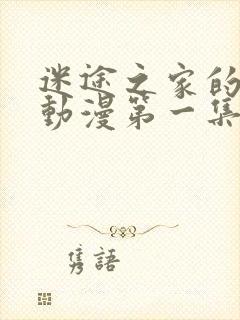 迷途之家的
動漫第一集
隽語